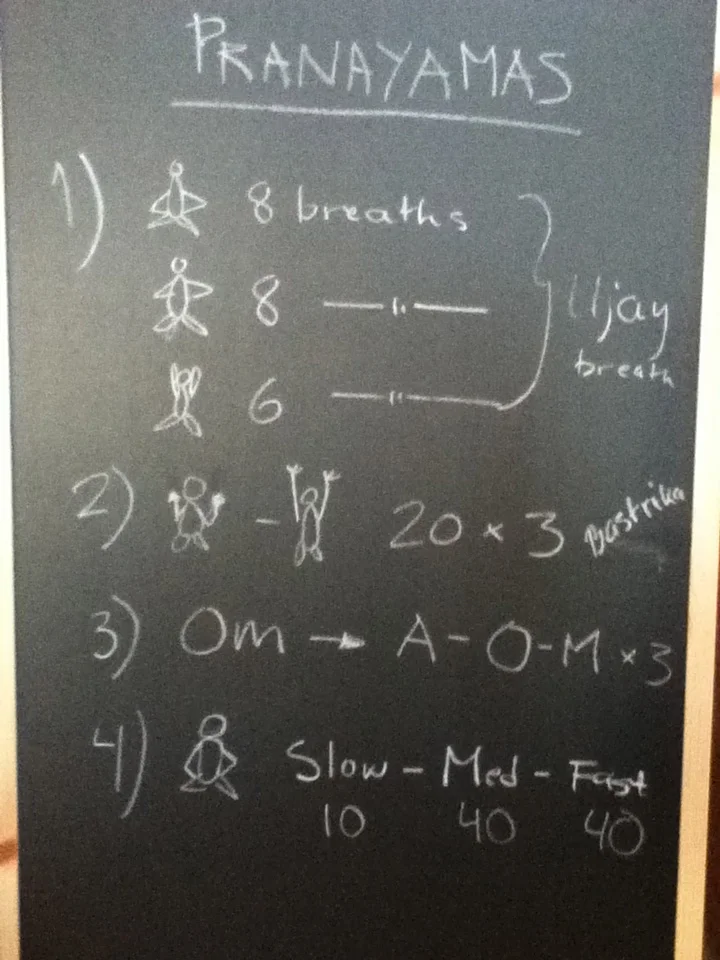 PRANAYAMAS
1) 8 breaths
8 —"—
6 —"—
Ujay
breath
2) - 20 × 3 Bastrika
3) Om → A-O-M × 3
4) Slow - Med - Fast
10 40 40